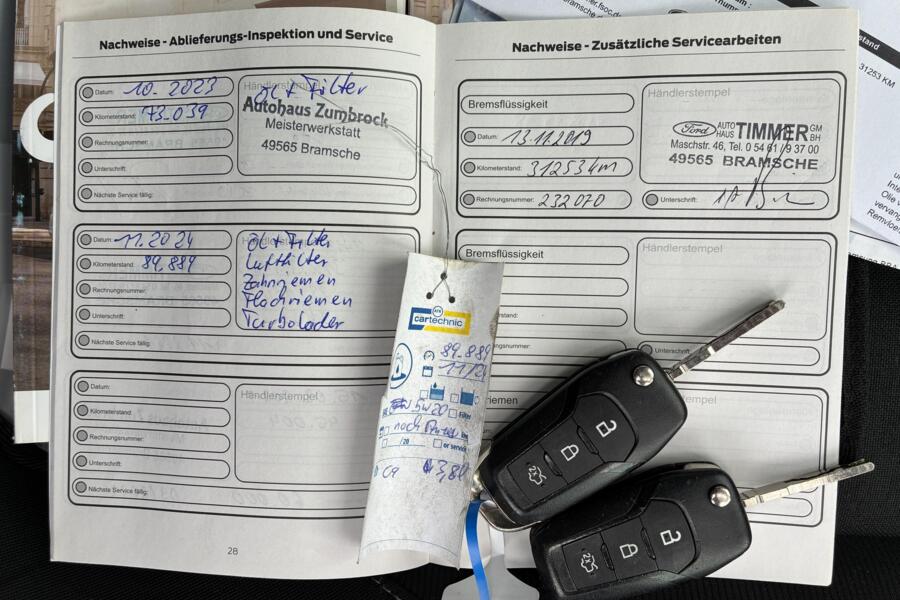 Nachweise - Ablieferungs-Inspektion und Service
Datum: 10. 2023
Kilometerstand: 73.039
Rechnungsnummer:
Unterschrift:
Nächste Service fällig:
Händlerstempel
Öl + Filter
Autohaus Zumbrock
Meisterwerkstatt
49565 Bramsche
Datum: 11.2024
Kilometerstand: 89.889
Rechnungsnummer:
Unterschrift:
Nächste Service fällig:
Öl + Filter
Luftfilter
Zahnriemen
Flachriemen
Turbolader
Datum:
Kilometerstand:
Rechnungsnummer:
Unterschrift:
Nächste Service fällig:
Händlerstempel
28
Nachweise - Zusätzliche Servicearbeiten
Bremsflüssigkeit
Datum: 13.11.2019
Kilometerstand: 31253km
Rechnungsnummer: 232070
Händlerstempel
Ford AUTO HAUS TIMMER GM BH
Maschstr. 46, Tel. 0 54 61 / 9 37 00
49565 BRAMSCHE
Unterschrift:
Bremsflüssigkeit
Händlerstempel
stand:
nungsnummer:
Unterschrift:
riemen
Händlerstempel
ATR
cartechnic
89.889
11/24
5W20
Filter
nach
/20
or service
3,8l
stand
31253 KM